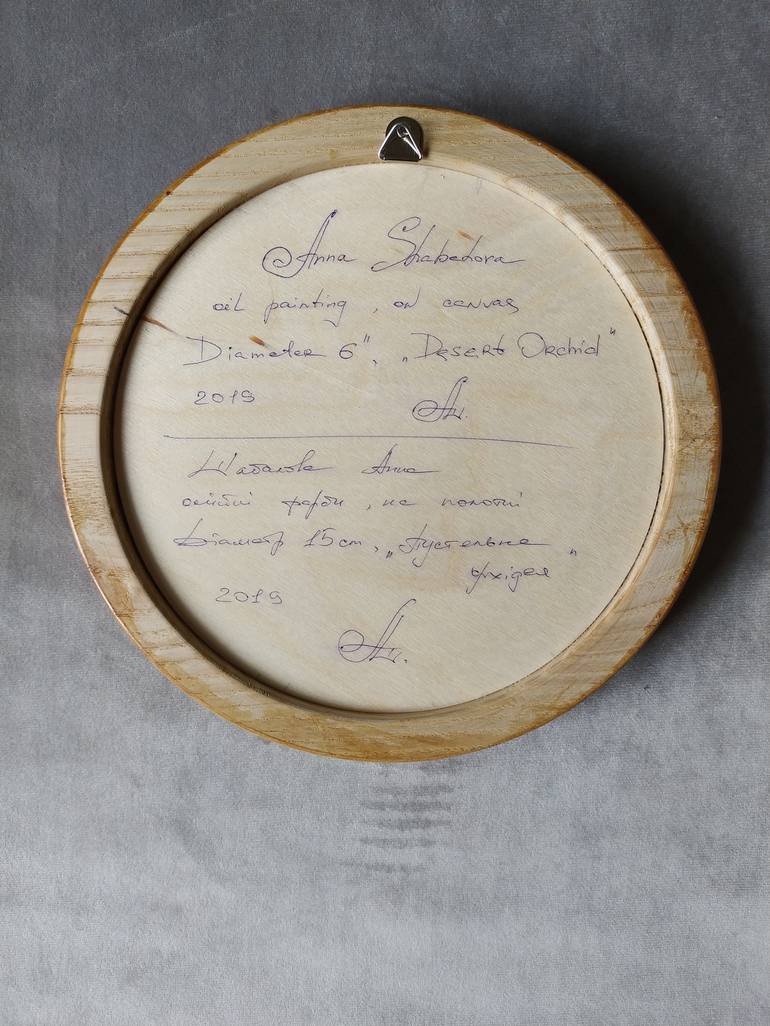 Anna Shabadora
oil painting, on canvas
Diameter 6", „Desert Orchid"
2019
Шабалова Анна
олійні фарби, на полотні
Діаметр 15 cm, „Пустельна
Орхідея"
2019